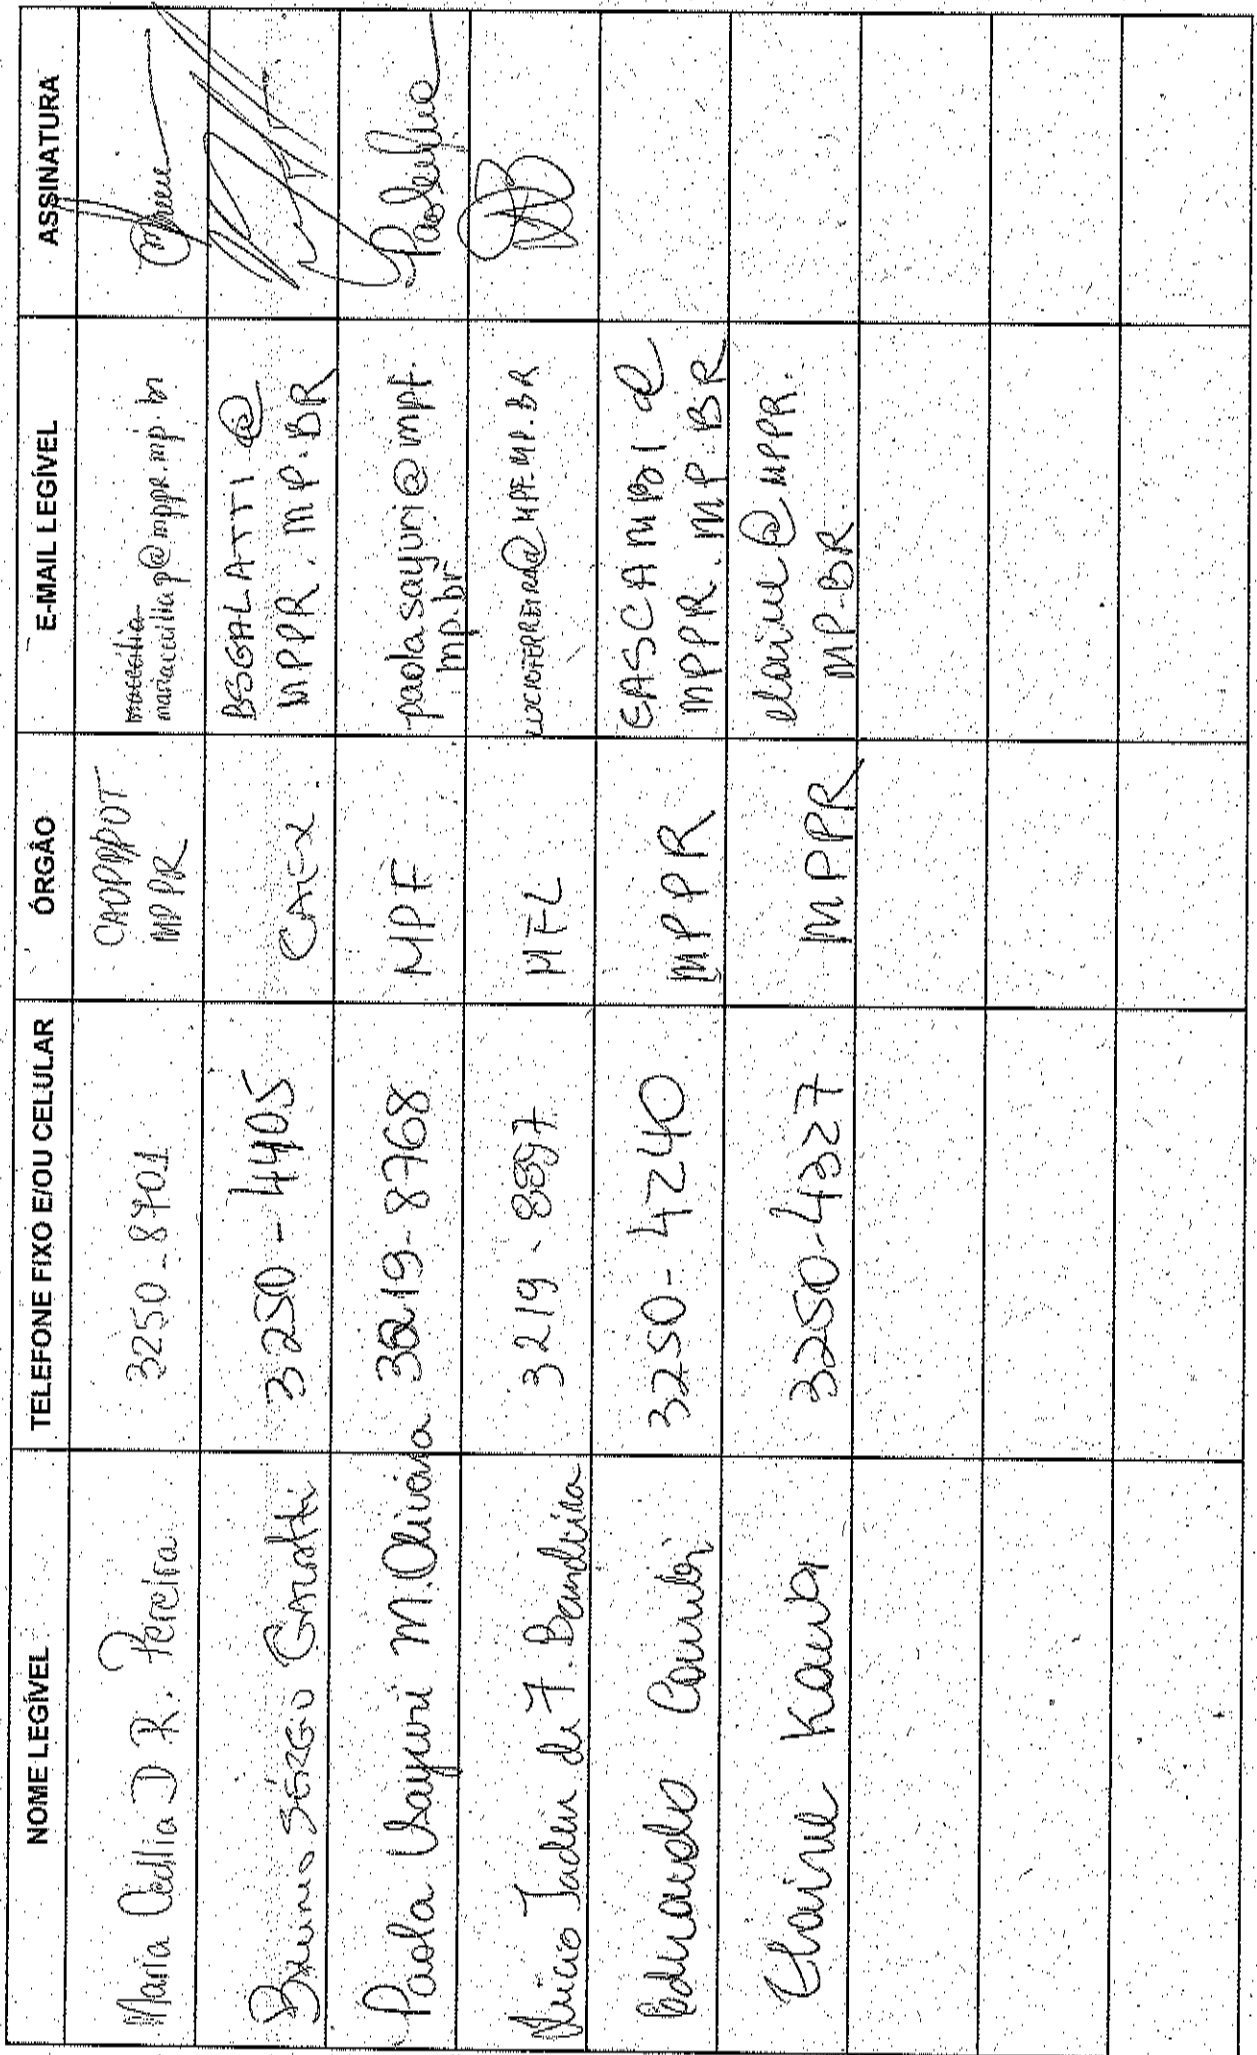 NOME LEGÍVEL TELEFONE FIXO E/OU CELULAR ÓRGÃO E-MAIL LEGÍVEL ASSINATURA
Maria Cecilia D R. Pereira 3250-8701 CAOPPPOT
MPPR
mariaceciliap@mppr.mp.br
Bruno Sérgio Galatti 3250-4405 BSGALATTI@
MPPR.MP.BR
Paola Sayuri M. Oliveira 3219-8768 MPF paolasayuri@mpf.
mp.br
Lucio Tadeu de F. Bandeira 3219-
Eduardo Cambi 3250-4240 MPPR EASCAMBI@
MPPR.MP.BR
Elaine 3250-4327 MPPR elaine@MPPR.
MP.BR